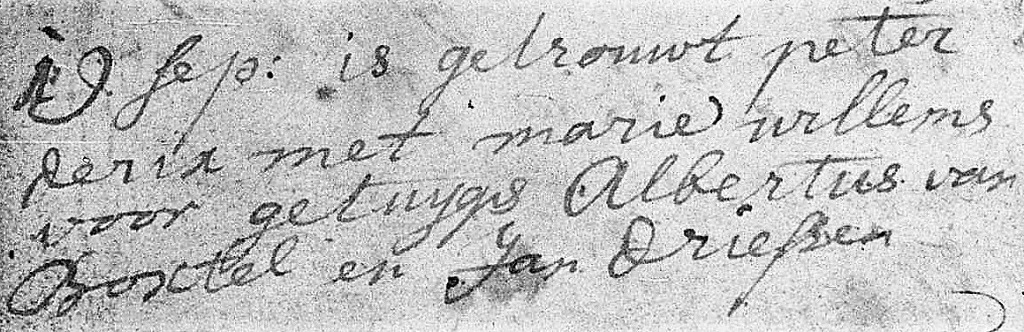 D sep: is getrouwt peter
derix met marie willems
voor getuygs Albertus van
Boxtel en Jan Driessen